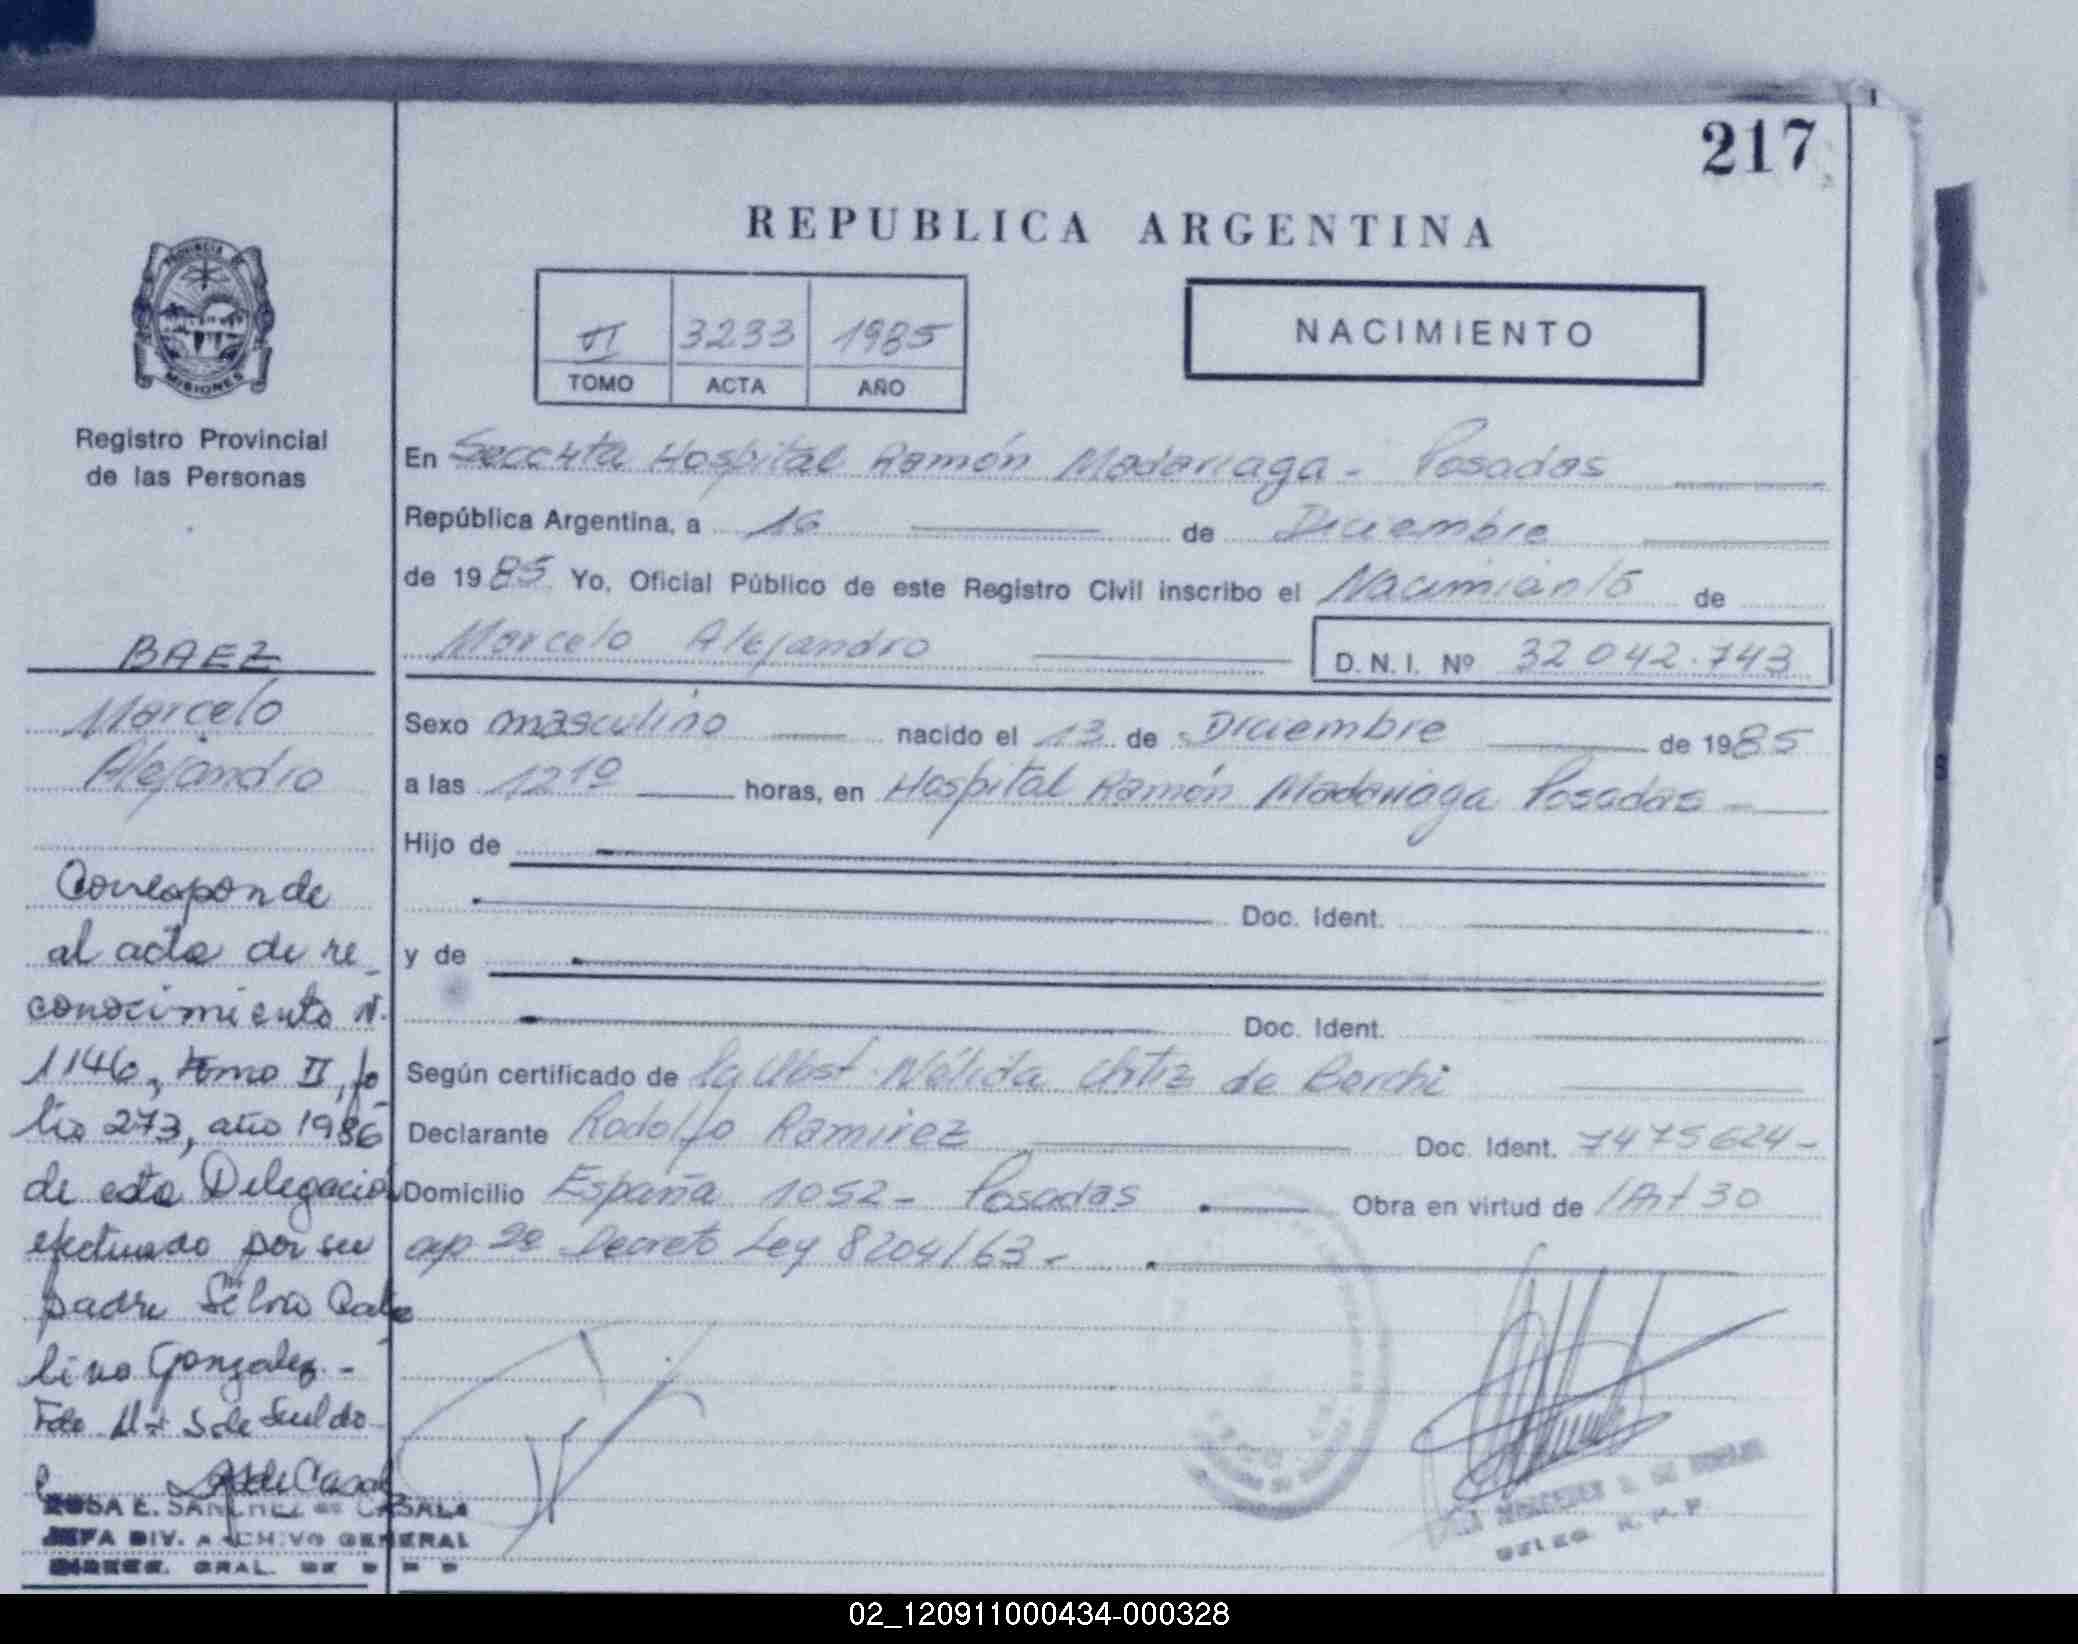 217
REPUBLICA ARGENTINA
PROVINCIA DE
MISIONES
3233 1985
TOMO ACTA AÑO
NACIMIENTO
Registro Provincial
de las Personas
En Secc 4ta Hospital Ramón Madariaga - Posadas
República Argentina, a 16 de Diciembre
de 1985 Yo, Oficial Público de este Registro Civil inscribo el Nacimiento de
Marcelo Alejandro D.N.I. Nº 32 042.743
Sexo masculino nacido el 13 de Diciembre de 1985
a las 12 10 horas, en Hospital Ramón Madariaga Posadas
Hijo de
Doc. Ident.
y de
Doc. Ident.
Según certificado de la Obst. Nélida Ortiz de Berchi
Declarante Rodolfo Ramirez Doc. Ident. 7475624-
Domicilio España 1052 - Posadas Obra en virtud de Art 30
ap 2º Decreto Ley 8204/63 -
BAEZ
Marcelo
Alejandro
Corresponde
al acta de re
conocimiento N.
1146, tomo II, fo
lio 273, año 1986
de esta Delegación
efectuado por su
padre Silvio Cata
lino Gonzalez.-
ROSA E. SANCHEZ de CASALA
JEFA DIV. ARCHIVO GENERAL
DIRECC. GRAL.
DELEG. R.P.P
02_120911000434-000328